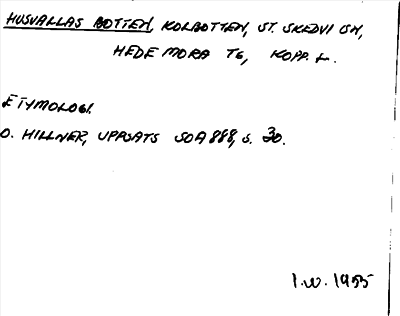 HUSVALLAS BOTTEN, KOLBOTTEN, ST. SKEDVI SN,
HEDEMORA TG, KOPP. L.
ETYMOLOGI.
O. HILLNER, UPPSATS SOA 888, S. 30.
I.W. 1955